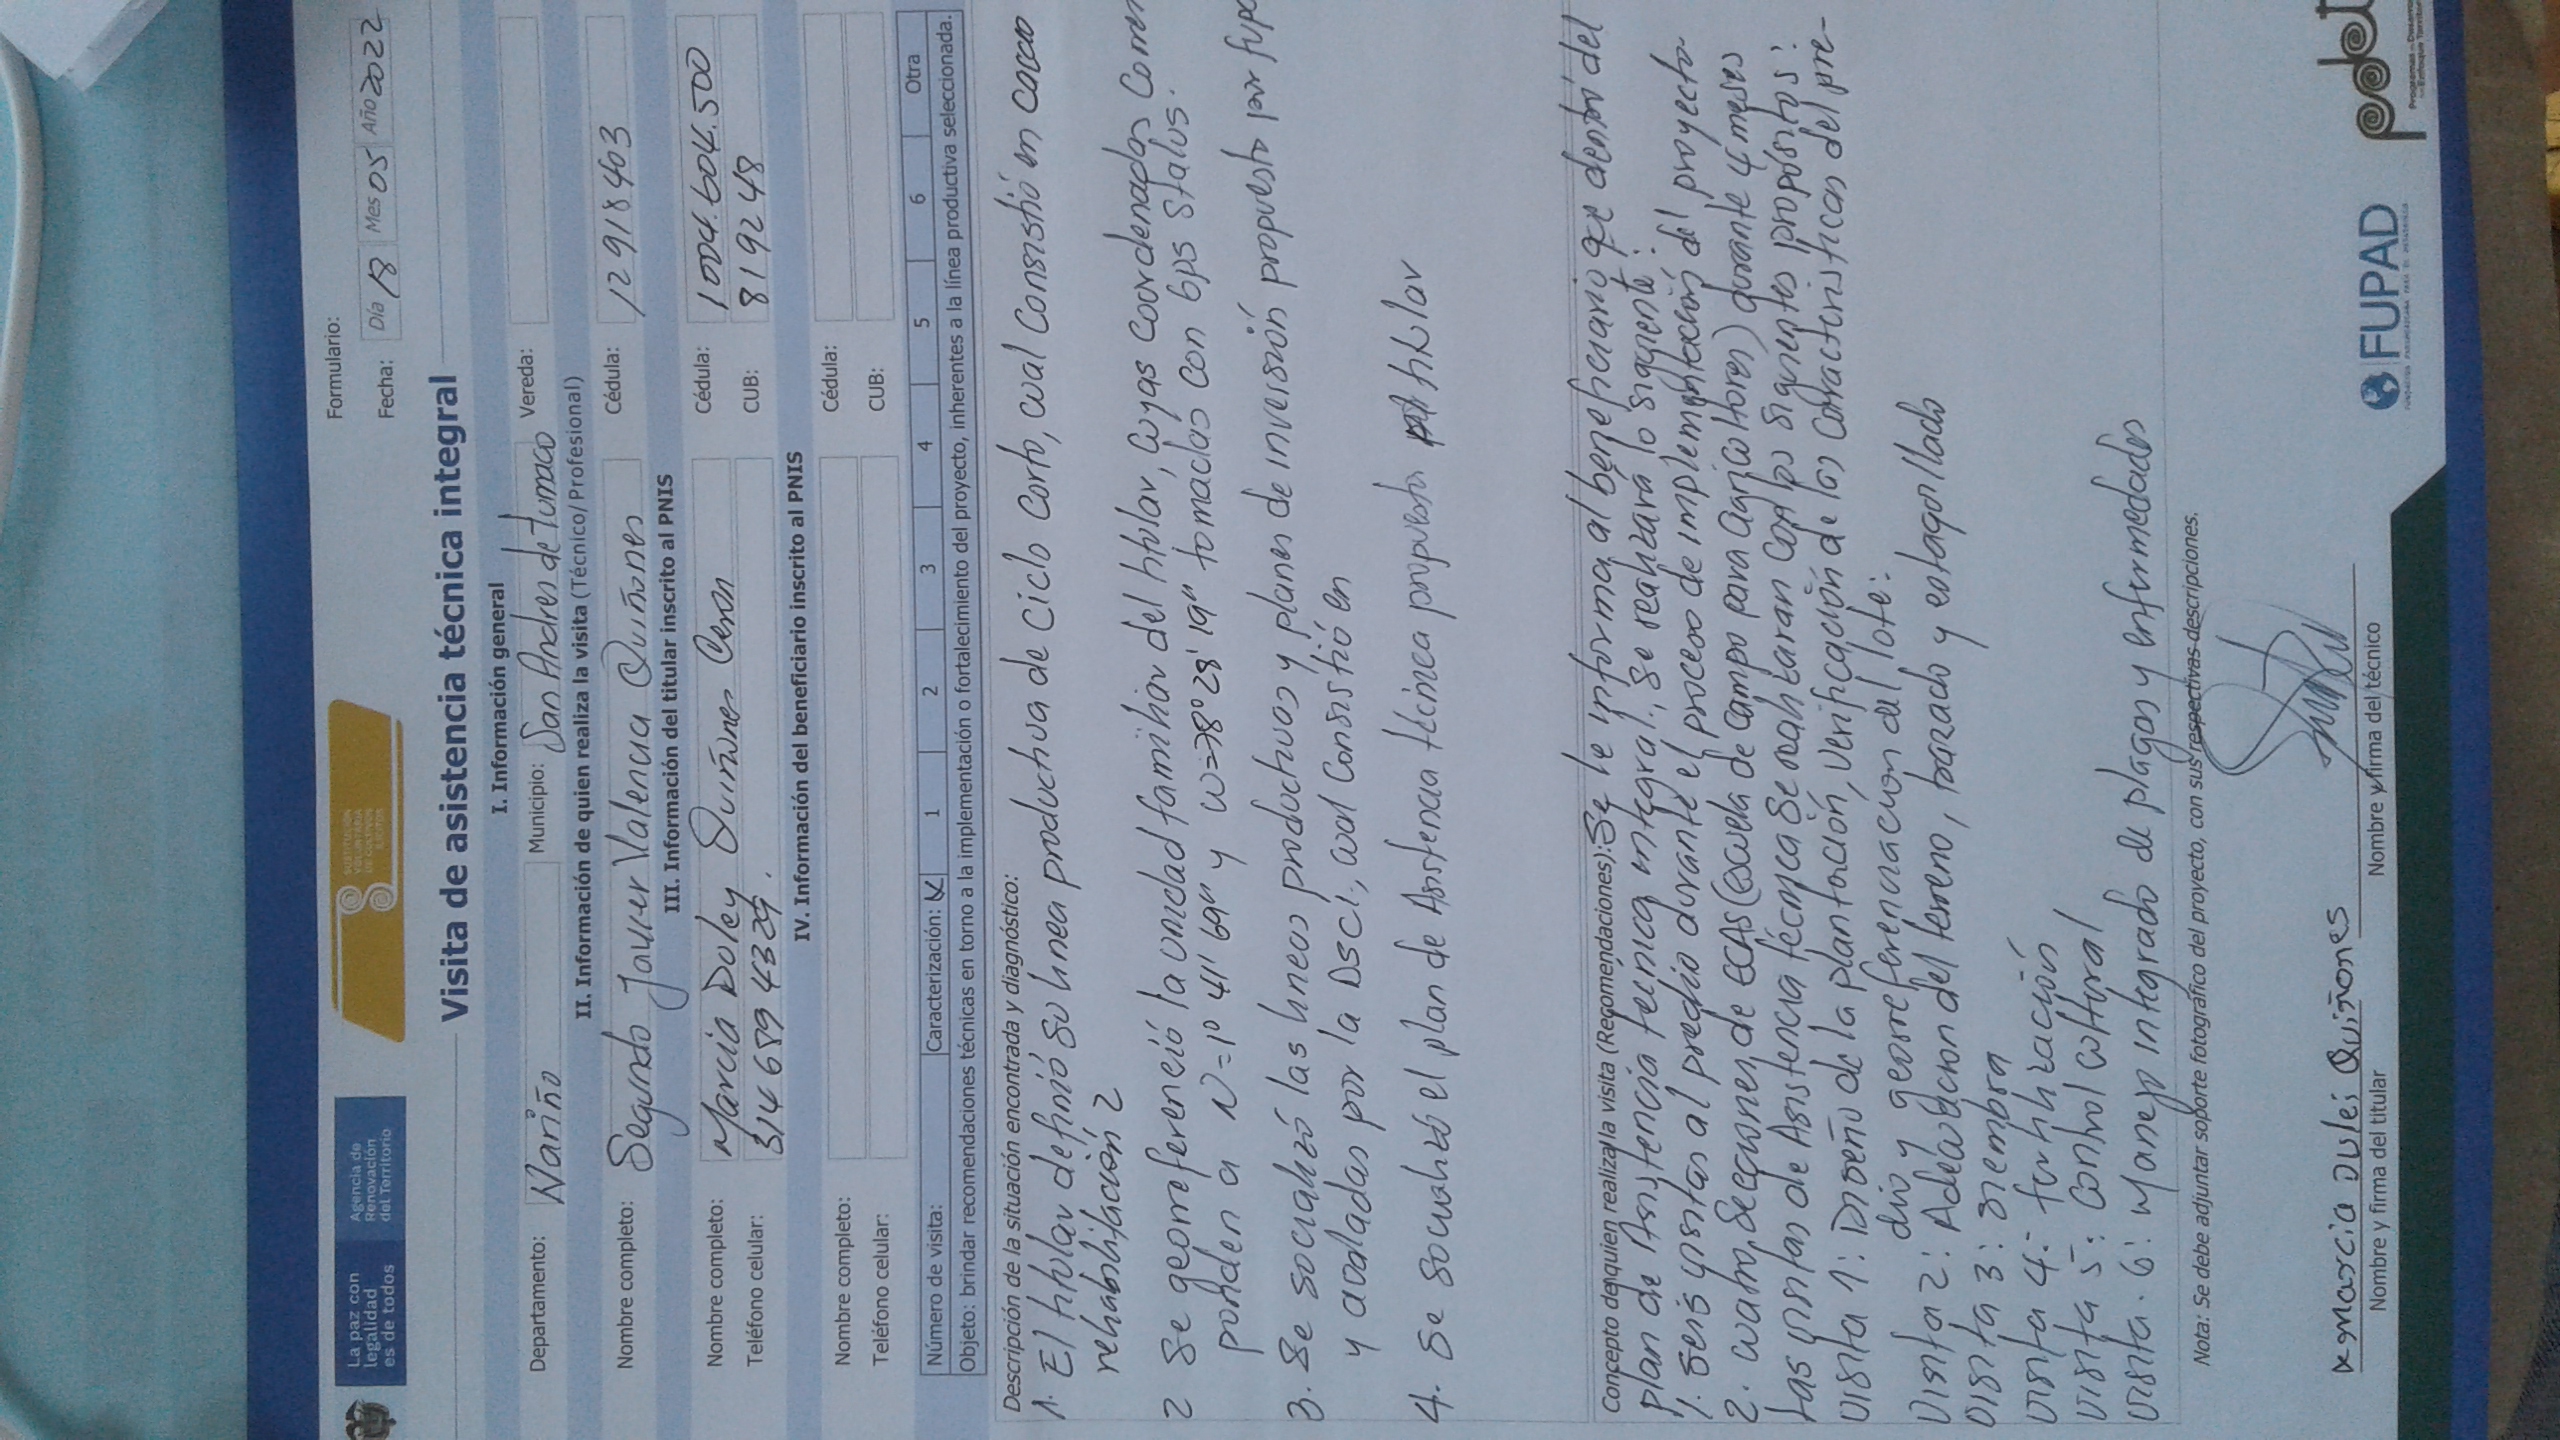 La paz con
legalidad
es de todos
Agencia de
Renovación
del Territorio
SUSTITUCIÓN
VOLUNTARIA
DE CULTIVOS
ILÍCITOS
Formulario:
Fecha: Día 18 Mes 05 Año 2022
Visita de asistencia técnica integral
I. Información general
Departamento: Nariño Municipio: San Andres de Tumaco Vereda:
II. Información de quien realiza la visita (Técnico/Profesional)
Nombre completo: Segundo Javier Valencia Quiñones Cédula: 12918403
III. Información del titular inscrito al PNIS
Nombre completo: Marcia Duley Quiñones Ceron Cédula: 1004.604.500
Teléfono celular: 314 689 4329. CUB: 819248
IV. Información del beneficiario inscrito al PNIS
Nombre completo: Cédula:
Teléfono celular: CUB:
Número de visita: Caracterización: X 1 2 3 4 5 6 Otra
Objeto: brindar recomendaciones técnicas en torno a la implementación o fortalecimiento del proyecto, inherentes a la línea productiva seleccionada.
Descripción de la situación encontrada y diagnóstico:
1. El titular definió su linea productiva de ciclo corto, cual consistió en cacao
rehabilitación 2
2 Se georreferenció la unidad familiar del titular, cuyas coordenadas corres
ponden a N=1° 41' 69" y W=78° 28' 19" tomadas con GPS Status.
3. Se socializó las lineas productivas y planes de inversión propuesto por fupa
y avaladas por la DSCI, cual consistió en
4. Se socializó el plan de Asistencia técnica propuesta titular
Concepto de quien realiza la visita (Recomendaciones): Se le informa al beneficiario que dentro del
plan de Asistencia tecnica integral, se realizará lo siguiente:
1. Seis visitas al predio durante el proceso de implementación del proyecto
2. cuatro Secciones de ECAS (escuela de campo para agricultores) durante 4 meses
Las visitas de Asistencia técnica se realizaran con los siguientes propósitos:
Visita 1: Diseño de la plantación, verificación de las caracteristicas del pre-
dio y georreferenciación del lote.
Visita 2: Adecuacion del terreno, trazado y estaquillado
Visita 3: Siembra
Visita 4: fertilización
Visita 5: Control cultural
Visita. 6: Manejo integrado de plagas y enfermedades
Nota: Se debe adjuntar soporte fotográfico del proyecto, con sus respectivas descripciones.
x Marcia Dulei Quiñones
Nombre y firma del titular
Nombre y firma del técnico
FUPAD
pdet